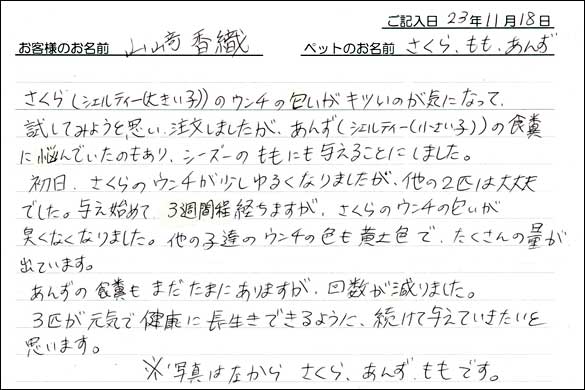 ご記入日 23年11月18日
お客様のお名前 山崎 香織 ペットのお名前 さくら、もも、あんず
さくら(シェルティー(大きい子))のウンチの匂いがキツいのが気になって、
試してみようと思い、注文しましたが、あんず(シェルティー(小さい子))の食糞
に悩んでいたのもあり、シーズーのももにも与えることにしました。
初日、さくらのウンチが少しゆるくなりましたが、他の2匹は大丈夫
でした。与え始めて、3週間程経ちますが、さくらのウンチの匂いが
臭くなくなりました。他の子達のウンチの色も黄土色で、たくさんの量が
出ています。
あんずの食糞もまだたまにありますが、回数が減りました。
3匹が元気で健康に長生きできるように、続けて与えていきたいと
思います。
※写真は左から さくら、あんず、ももです。